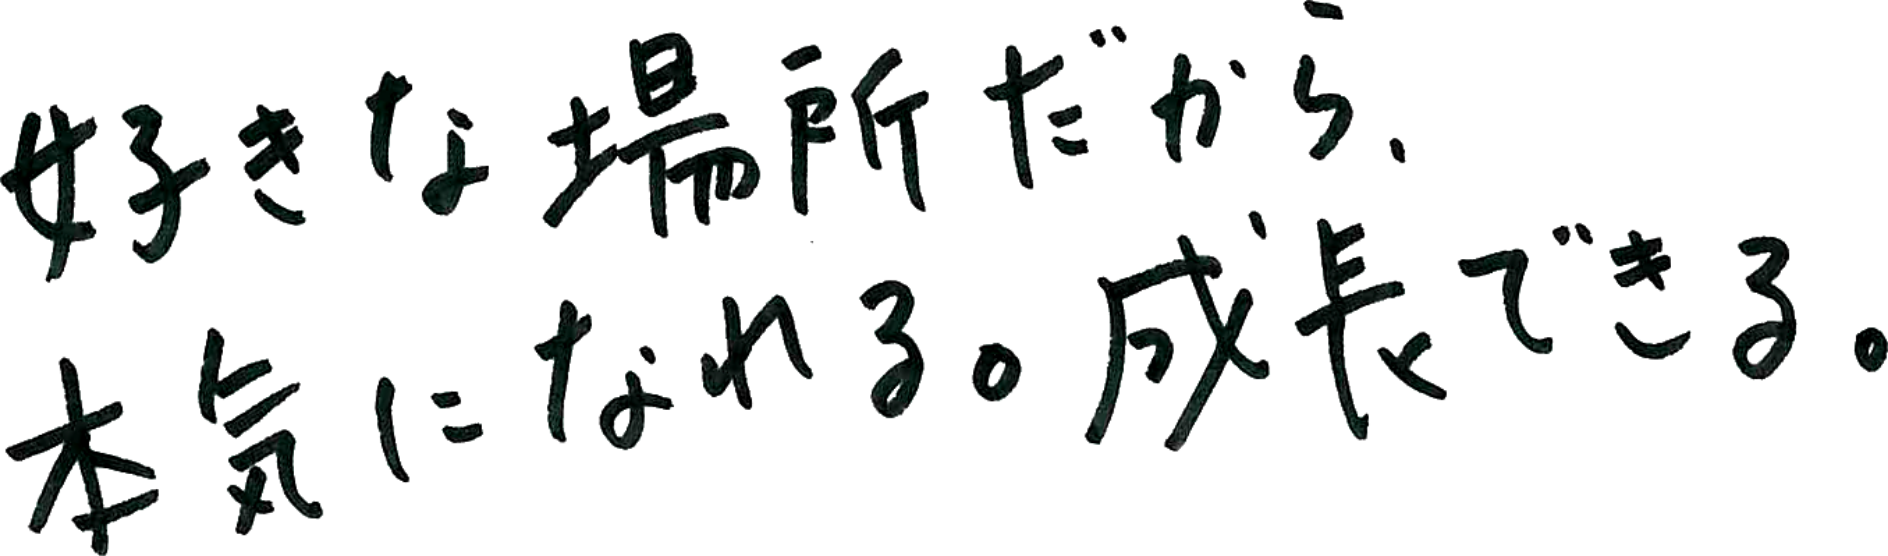 好きな場所だから、
本気になれる。成長できる。